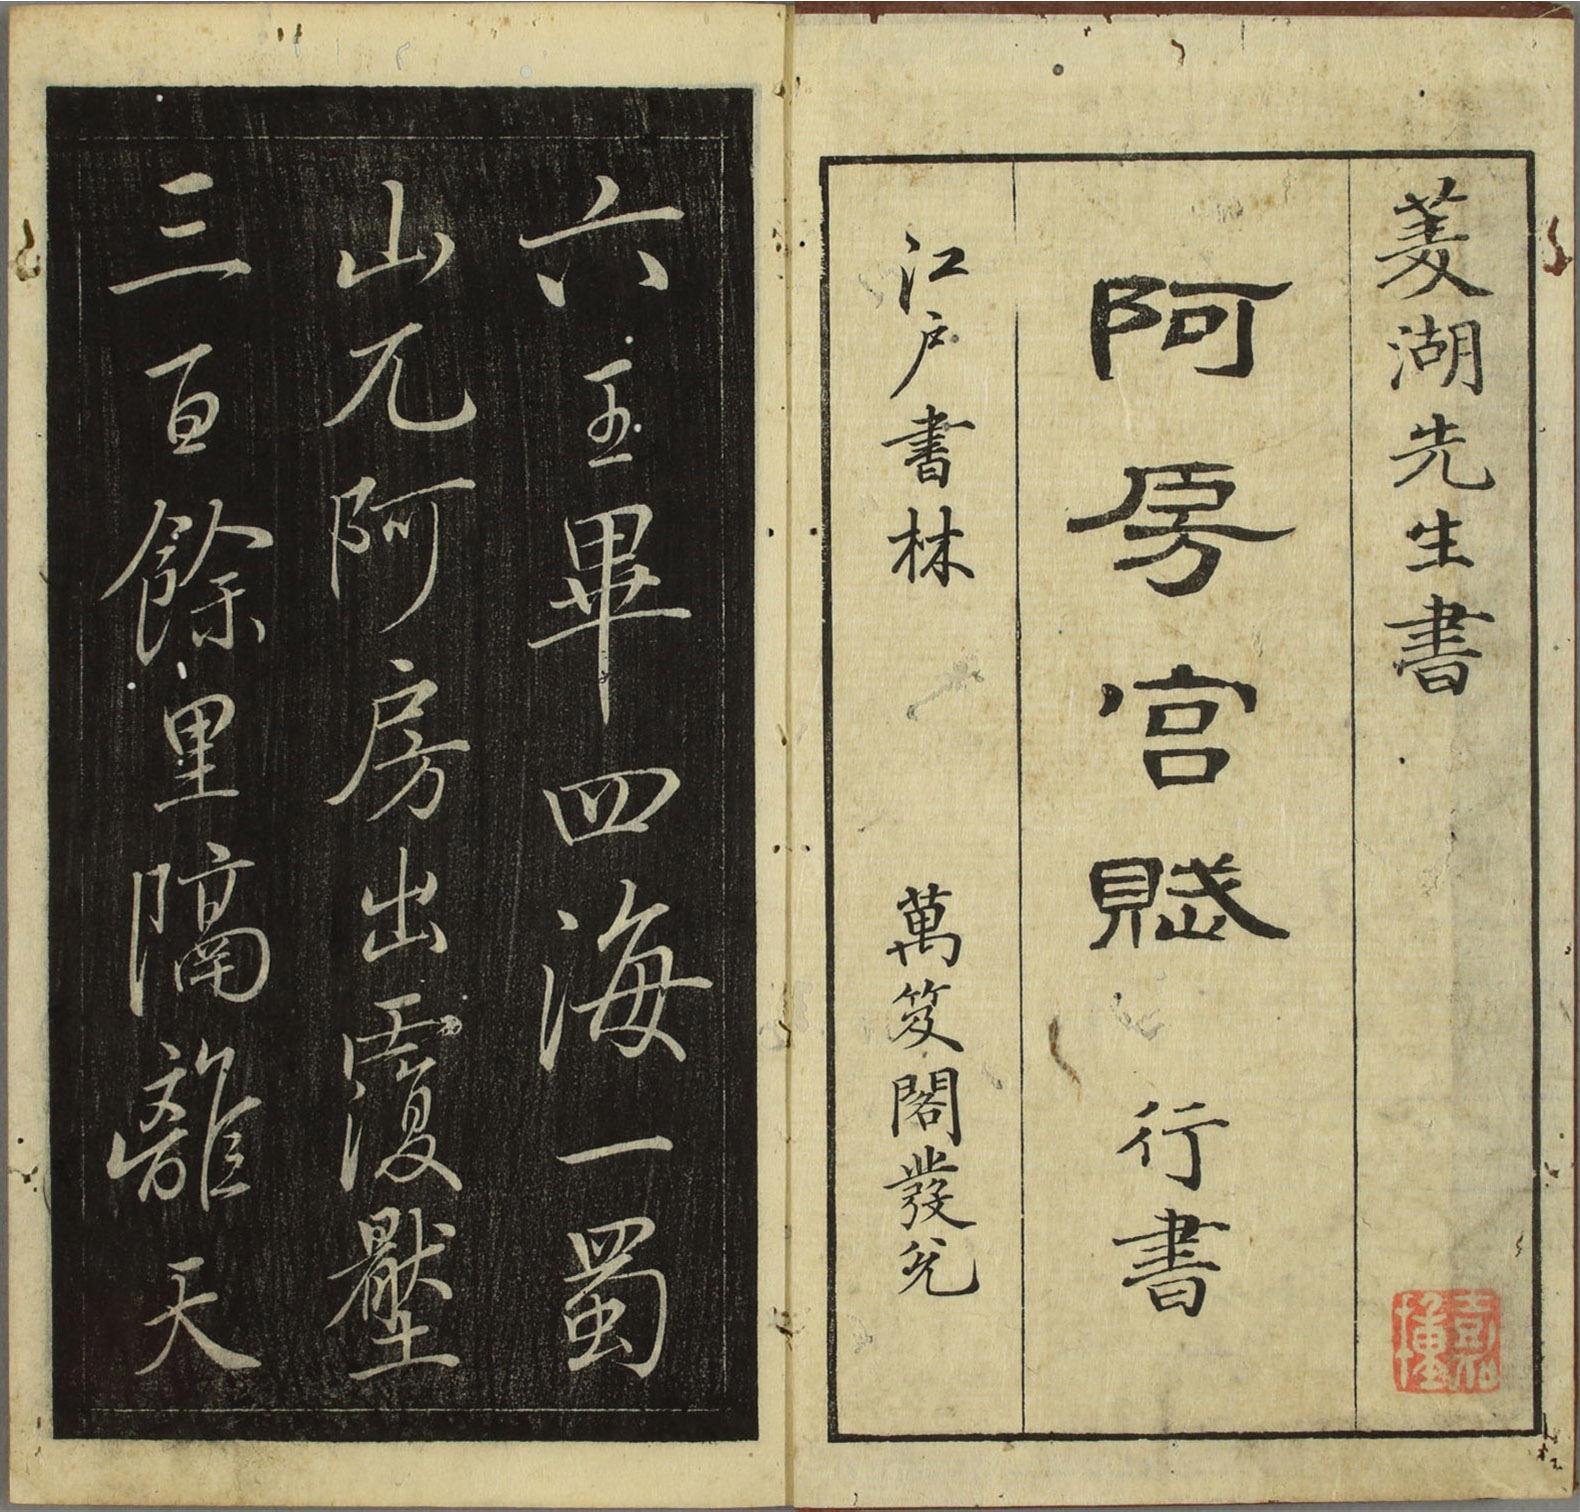 菱湖先生書
阿房宮賦 行書
江戶書林 萬笈閣發兌
六王畢四海一蜀
山兀阿房出覆壓
三百餘里隔離天